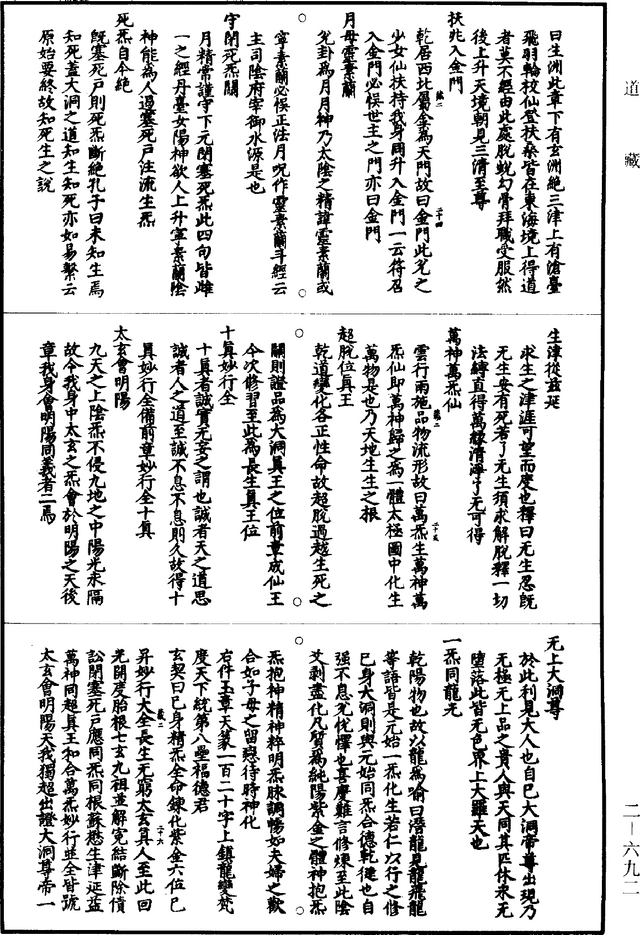 道藏
曰生洲此章下有玄洲絕三津上有滄臺
飛羽輪校仙登扶桑皆在東海境上得道
者莫不經由此處脫蛻幻骨拜職受服然
後上升天境朝見三清至尊
扶兆入金門
乾居西北屬金為天門故曰金門此兌之
少女仙扶持我身同升入金門一云符召
入金門必悮世主之門亦曰金門
月母靈素蘭
兌卦為月月神乃太陰之精諱靈素蘭或
寧素蘭必悮正法月呪作靈素蘭斗經云
主司陰府宰御水源是也
守閉死炁關
月精常謹守下元閉塞死炁此四句皆雌
一之經丹臺女陽神欲人上升寧素蘭陰
神能為人過塞死戶注流生炁
死炁自令絕
既塞死戶則死炁斷絕孔子曰未知生焉
知死蓋大洞之道知生知死亦如易繫云
原始要終故知死生之說
生津從茲延
求生之津涯可望而度也釋曰无生忍既
无生安有死若了无生須求解脫釋一切
法縛直得萬緣清淨了无可得
萬神萬炁仙
雲行雨施品物流形故曰萬炁生萬神萬
炁仙即萬神歸之為一體太極圖中化生
萬物是也乃天地生生之根
超脫位真王
乾道變化各正性命故超脫過越生死之
關則證品為大洞真王之位前章成仙王
今次修習至此為長生真王位
十真妙行全
十真者誠實无妄之謂也誠者天之道思
誠者人之道至誠不息不息則久故得十
真妙行全備前章妙行全十真
太玄會明陽
九天之上陰炁不侵九地之中陽光永隔
故令我身中太玄之炁會於明陽之天後
章我身會明陽同義者二焉
无上大洞尊
於此利見大人也自已大洞帝尊出現乃
无極无上品之貴人與天同其匹休永无
墮落此皆无色界上大羅天也
一炁同龍无
乾陽物也故以龍為喻曰潛龍見龍飛龍
等語皆是元始一炁化生若仁以行之修
已身大洞則與元始同炁合德乾健也自
强不息先憂懌也喜慶難言修煉至此陰
爻剥盡化凡質為純陽紫金之體神抱炁
炁抱神精神粹明炁脉調暢如夫婦之歡
合如子母之留戀待時神化
右件玉章天篆一百二十字上鎮龍變梵
度天下統第八壘福德君
玄契曰已身精炁全命鍊化紫金六位已
昇妙行大全長生无窮太玄真人至此回
光開度胎根七玄九祖並解冤結斷除債
訟閉塞死戶應同炁同根蘇懋生津延益
萬神同超真王和合萬炁妙行並全皆號
太玄會明陽天我獨超出證大洞尊帝一
二一六九二